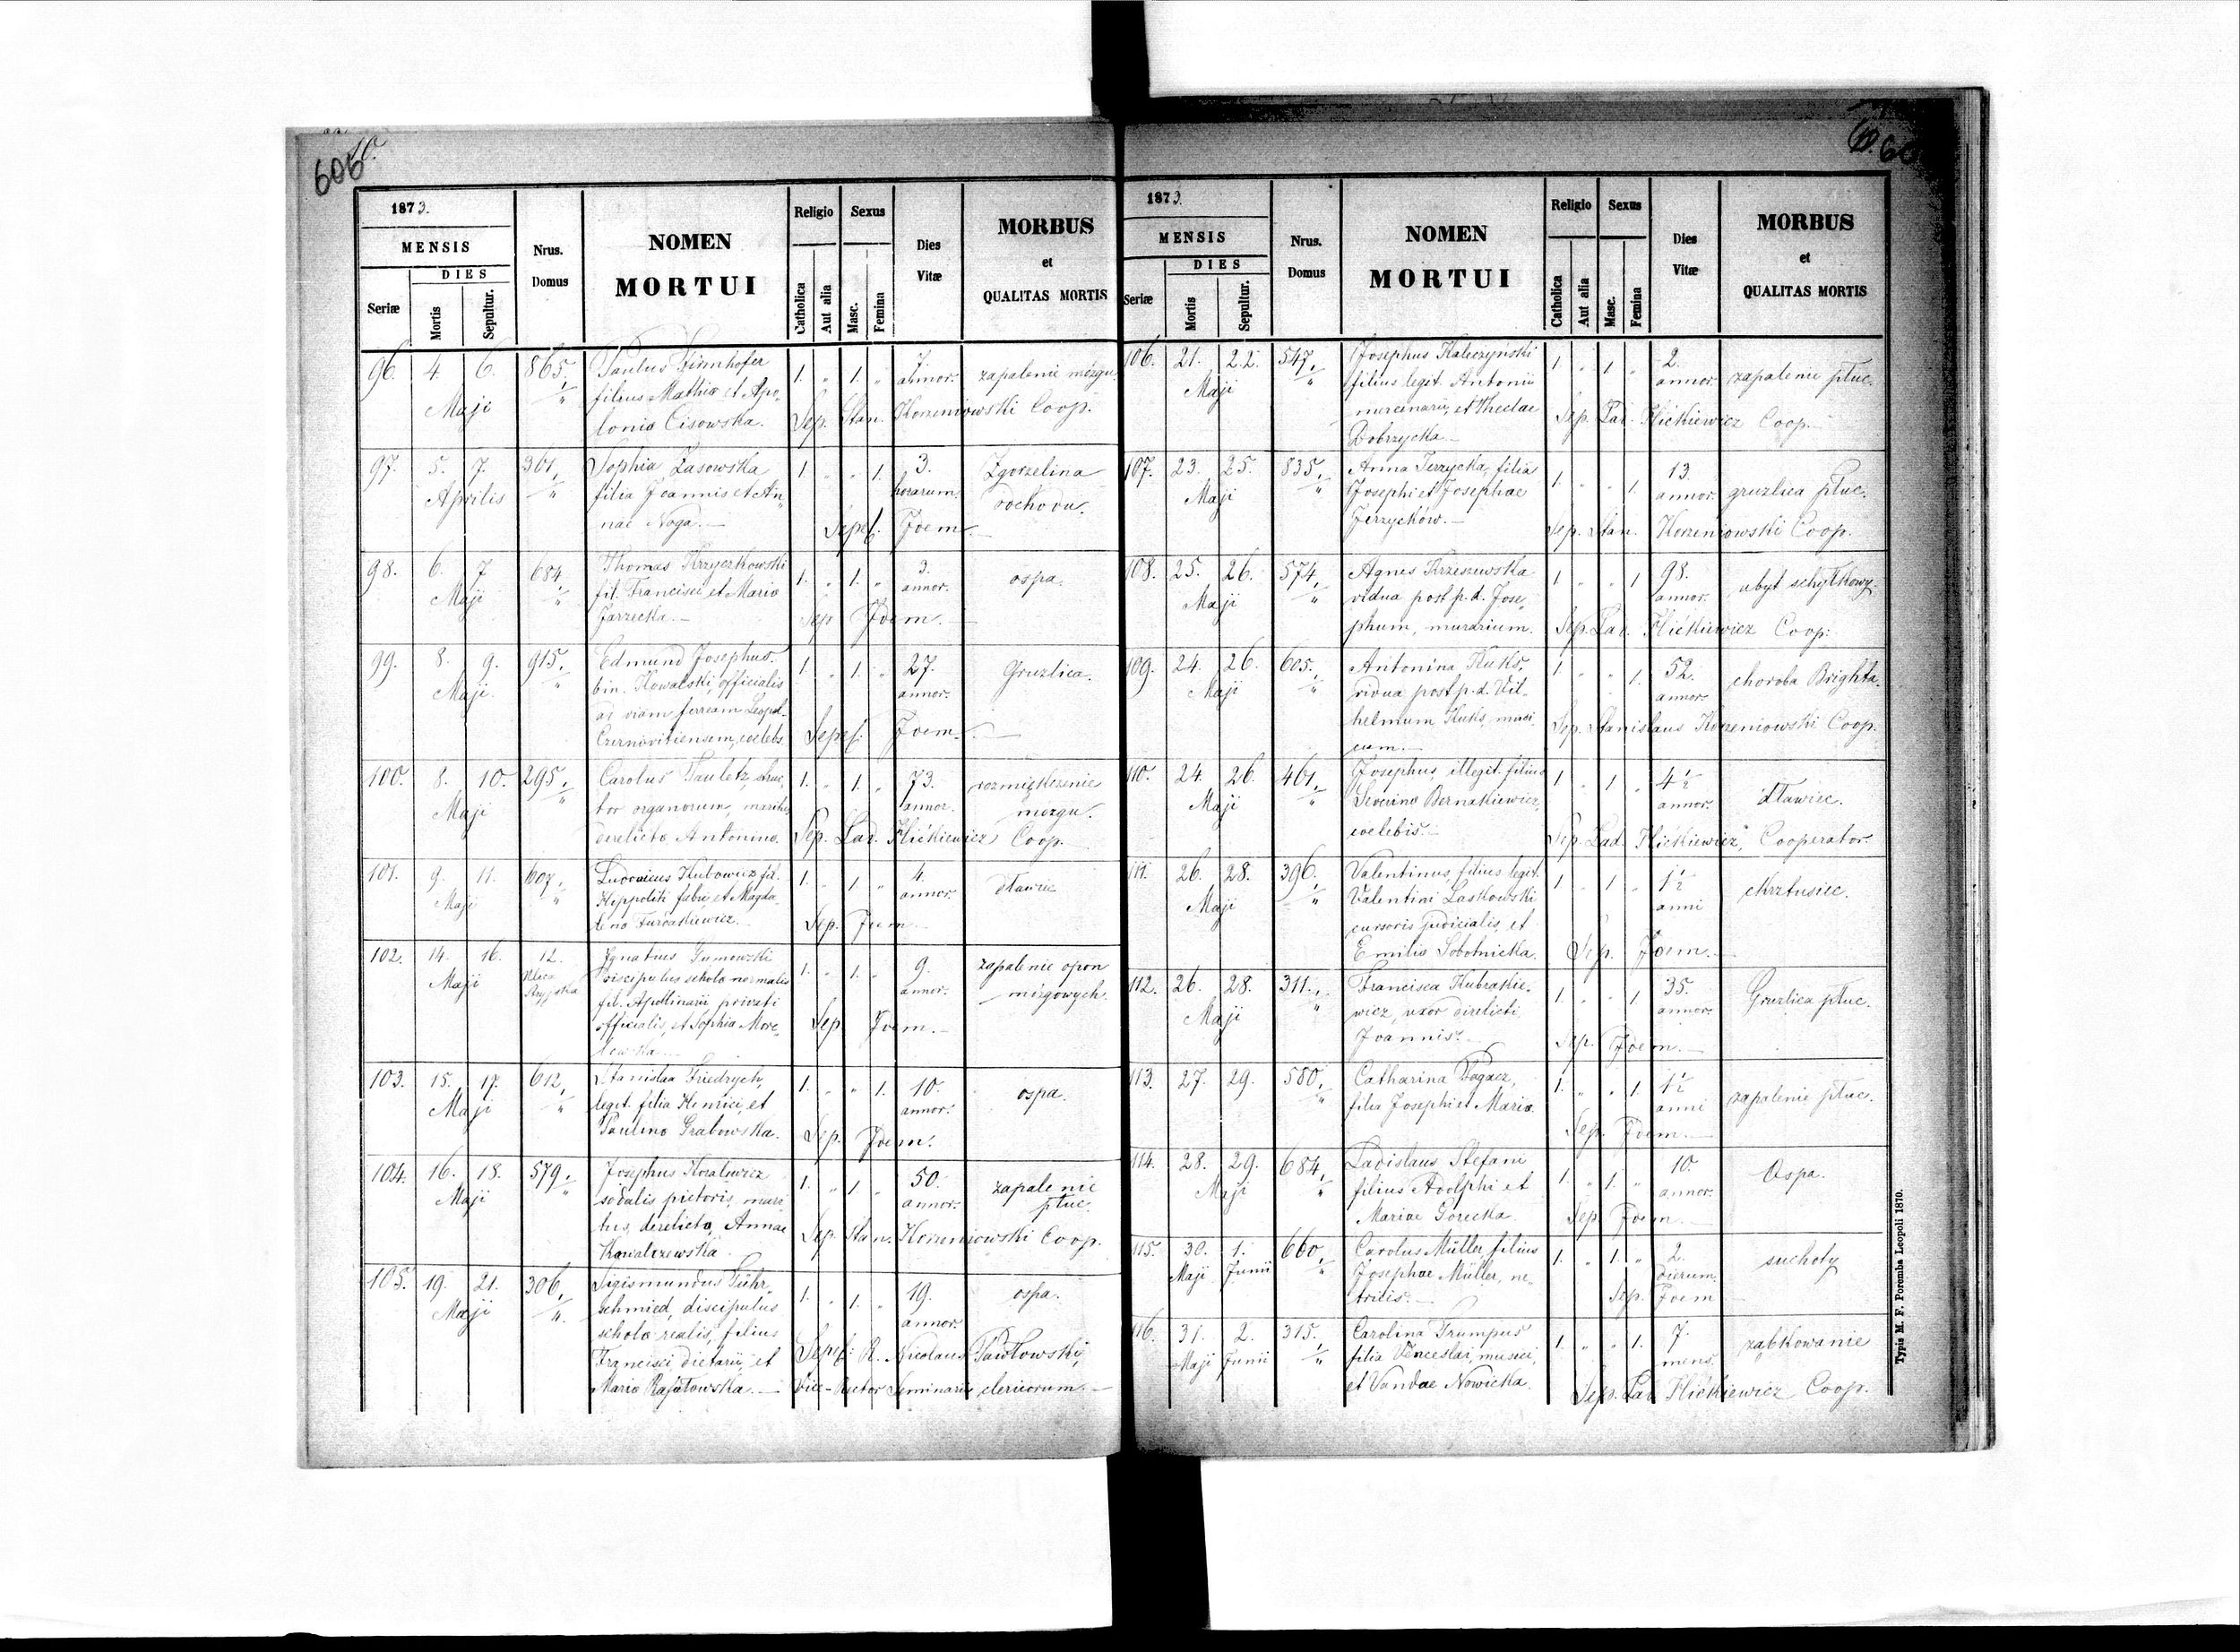 606
1873.
MENSIS
DIES
Seriæ
Mortis
Sepultur.
Nrus.
Domus
NOMEN
MORTUI
Religio
Catholica
Aut alia
Sexus
Masc.
Femina
Dies
Vitæ
MORBUS
et
QUALITAS MORTIS
96. 4. 6. 865. Paulus 1. „ 1. „ 7. zapalenie mózgu.
Maji filius Mathiæ et Apo- annor.
lonia Cisowska. Sep. Stan. Korzeniowski Coop.
97. 5. 7. 361. Sophia Zasowska 1. „ „ 1. 3. Zgorzelina
Aprilis filia Joannis et An- horarum.
nae Noga.— Sepel. Idem.
98. 6. 7 684. Thomas Krzyczkowski 1. „ 1. „ 3. ospa.
Maji fil. Francisci et Maria annor.
Jarzecka.— Sep Idem.—
99. 8. 9. 915. Edmund Josephus 1. „ 1. „ 27. Gruzlica.
Maji bin. Kowalski, officialis annor.
ad viam ferream Leopol-
Czernovitiensem, coelebs. Sepel. Idem.—
100. 8. 10. 295. Carolus struc- 1. „ 1. „ 73. rozmiękczenie
Maji tor organorum, maritus annor. mózgu.
derelicta Antonina. Sep. Lad. Hićkiewicz Coop.
101. 9. 11. 607. Kubowicz fil. 1. „ 1. „ 4. dławiec
Maji Hippoliti fabri et Magda- annor.
lena Sep. Idem
102. 14. 16. 12. Ignatius Gumowski 1. „ 1. „ 9. zapalenie opon
Maji Ulica Stryjska discipulus schola normalis annor. mózgowych.
fil. Apollinarii privati
officialis, et Sophia More- Sep. Idem.—
103. 15. 17. 612. Stanislaa Friedrych, 1. „ „ 1. 10. ospa.
Maji legit. filia Henrici, et annor.
Paulina Grabowska. Sep. Idem.
104. 16. 18. 579. Josephus 1. „ 1. „ 50. zapalenie
Maji sodalis pictoris, mari- annor. płuc.
tus, derelicta Annae Sep. Stan. Korzeniowski Coop.
Kowalczewska.
105. 19. 21. 306. Sigismundus 1. „ 1. „ 19. ospa.
Maji schmied, discipulus annor.
schola realis, filius
Francisci dietarii, et Sepel. R. Nicolaus Pawłowski,
Maria Rafałowska.— Vice-Rector Seminarii clericorum.—
1873.
MENSIS
DIES
Seriæ
Mortis
Sepultur.
Nrus.
Domus
NOMEN
MORTUI
Religio
Catholica
Aut alia
Sexus
Masc.
Femina
Dies
Vitæ
MORBUS
et
QUALITAS MORTIS
106. 21. 22. 547. Josephus Kaleczyński 1 „ 1 „ 2. zapalenie płuc.
Maji filius legit. Antonii annor.
mercinarii, et Theclae Sep. Lad. Hićkiewicz Coop.—
Dobrzycka—
107. 23. 25. 835. Anna Jerzycka, filia 1. „ „ 1. 13. gruzlica płuc.
Maji Josephi et Josephae annor.
Jerzyckow.— Sep. Stan. Korzeniowski Coop.
108. 25. 26. 574. Agnes Krzeszewska 1 „ „ 1 98. ubyt schyłkowy.
Maji vidua post p. d. Jose- annor.
phum, murarium. Sep. Lad. Hićkiewicz Coop:
109. 24. 26. 605. Antonina Kuks, 1 „ „ 1. 52. choroba Brighta.
Maji vidua post p. d. Vil- annor.
helmum Kuks, musi- Sep. Stanislaus Korzeniowski Coop.
cum.—
110. 24. 26. 461. Josephus, illegit. filius 1 „ 1 „ 4½ dławiec.
Maji Severina Bernakiewicz, annor.
coelebis.— Sep. Lad. Hićkiewicz, Cooperator.
111. 26. 28. 396. Valentinus, filius legit. 1 „ 1 „ 1½ ckrztusiec.
Maji Valentini Laskowski anni
cursoris judicialis, et
Emilia Sobotnicka. Sep. Idem.—
112. 26. 28. 311. Francisca Kubrakie- 1. „ „ 1. 35. Gruzlica płuc.
Maji wicz, uxor derelicti annor.
Joannis.— Sep. Idem.—
113. 27. 29. 580. Catharina Bogacz, 1. „ „ 1. 1½ zapalenie płuc.
filia Josephi et Maria. anni
Sep. Idem.—
114. 28. 29. 684. Ladislaus Stefani 1. „ 1. „ 10. Ospa.
Maji filius Adolphi et annor.
Mariae Gorecka. Sep. Idem.—
115. 30. 1. 660. Carolus Müller, filius 1. „ 1. „ 2. suchoty
Maji Junii Josephae Müller, ne- dierum.
trilis.— Sep. Idem
116. 31. 2. 315. Carolina Trumpus 1. „ „ 1. 7. ząbkowanie
Maji Junii filia Venceslai, musici, mens.
et Vandae Nowicka. Sep. Lad Hićkiewicz Coop.
Typis M. F. Poremba Leopoli 1870.